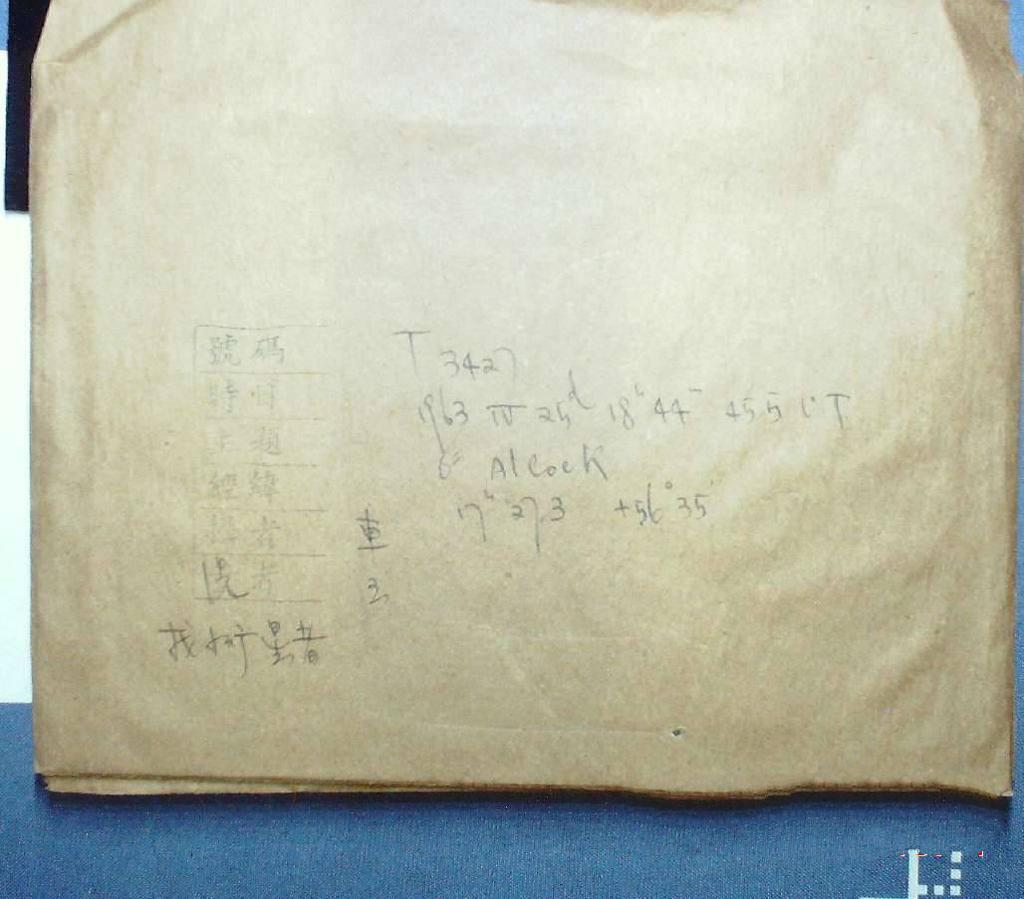 號碼 T 3427
時間 1963 IV 25ᵈ 18ʰ 44ᵐ 45.5 UT
主題 Alcock
經緯 17ʰ 27.3 +56° 35'
者 車
者
找 星者